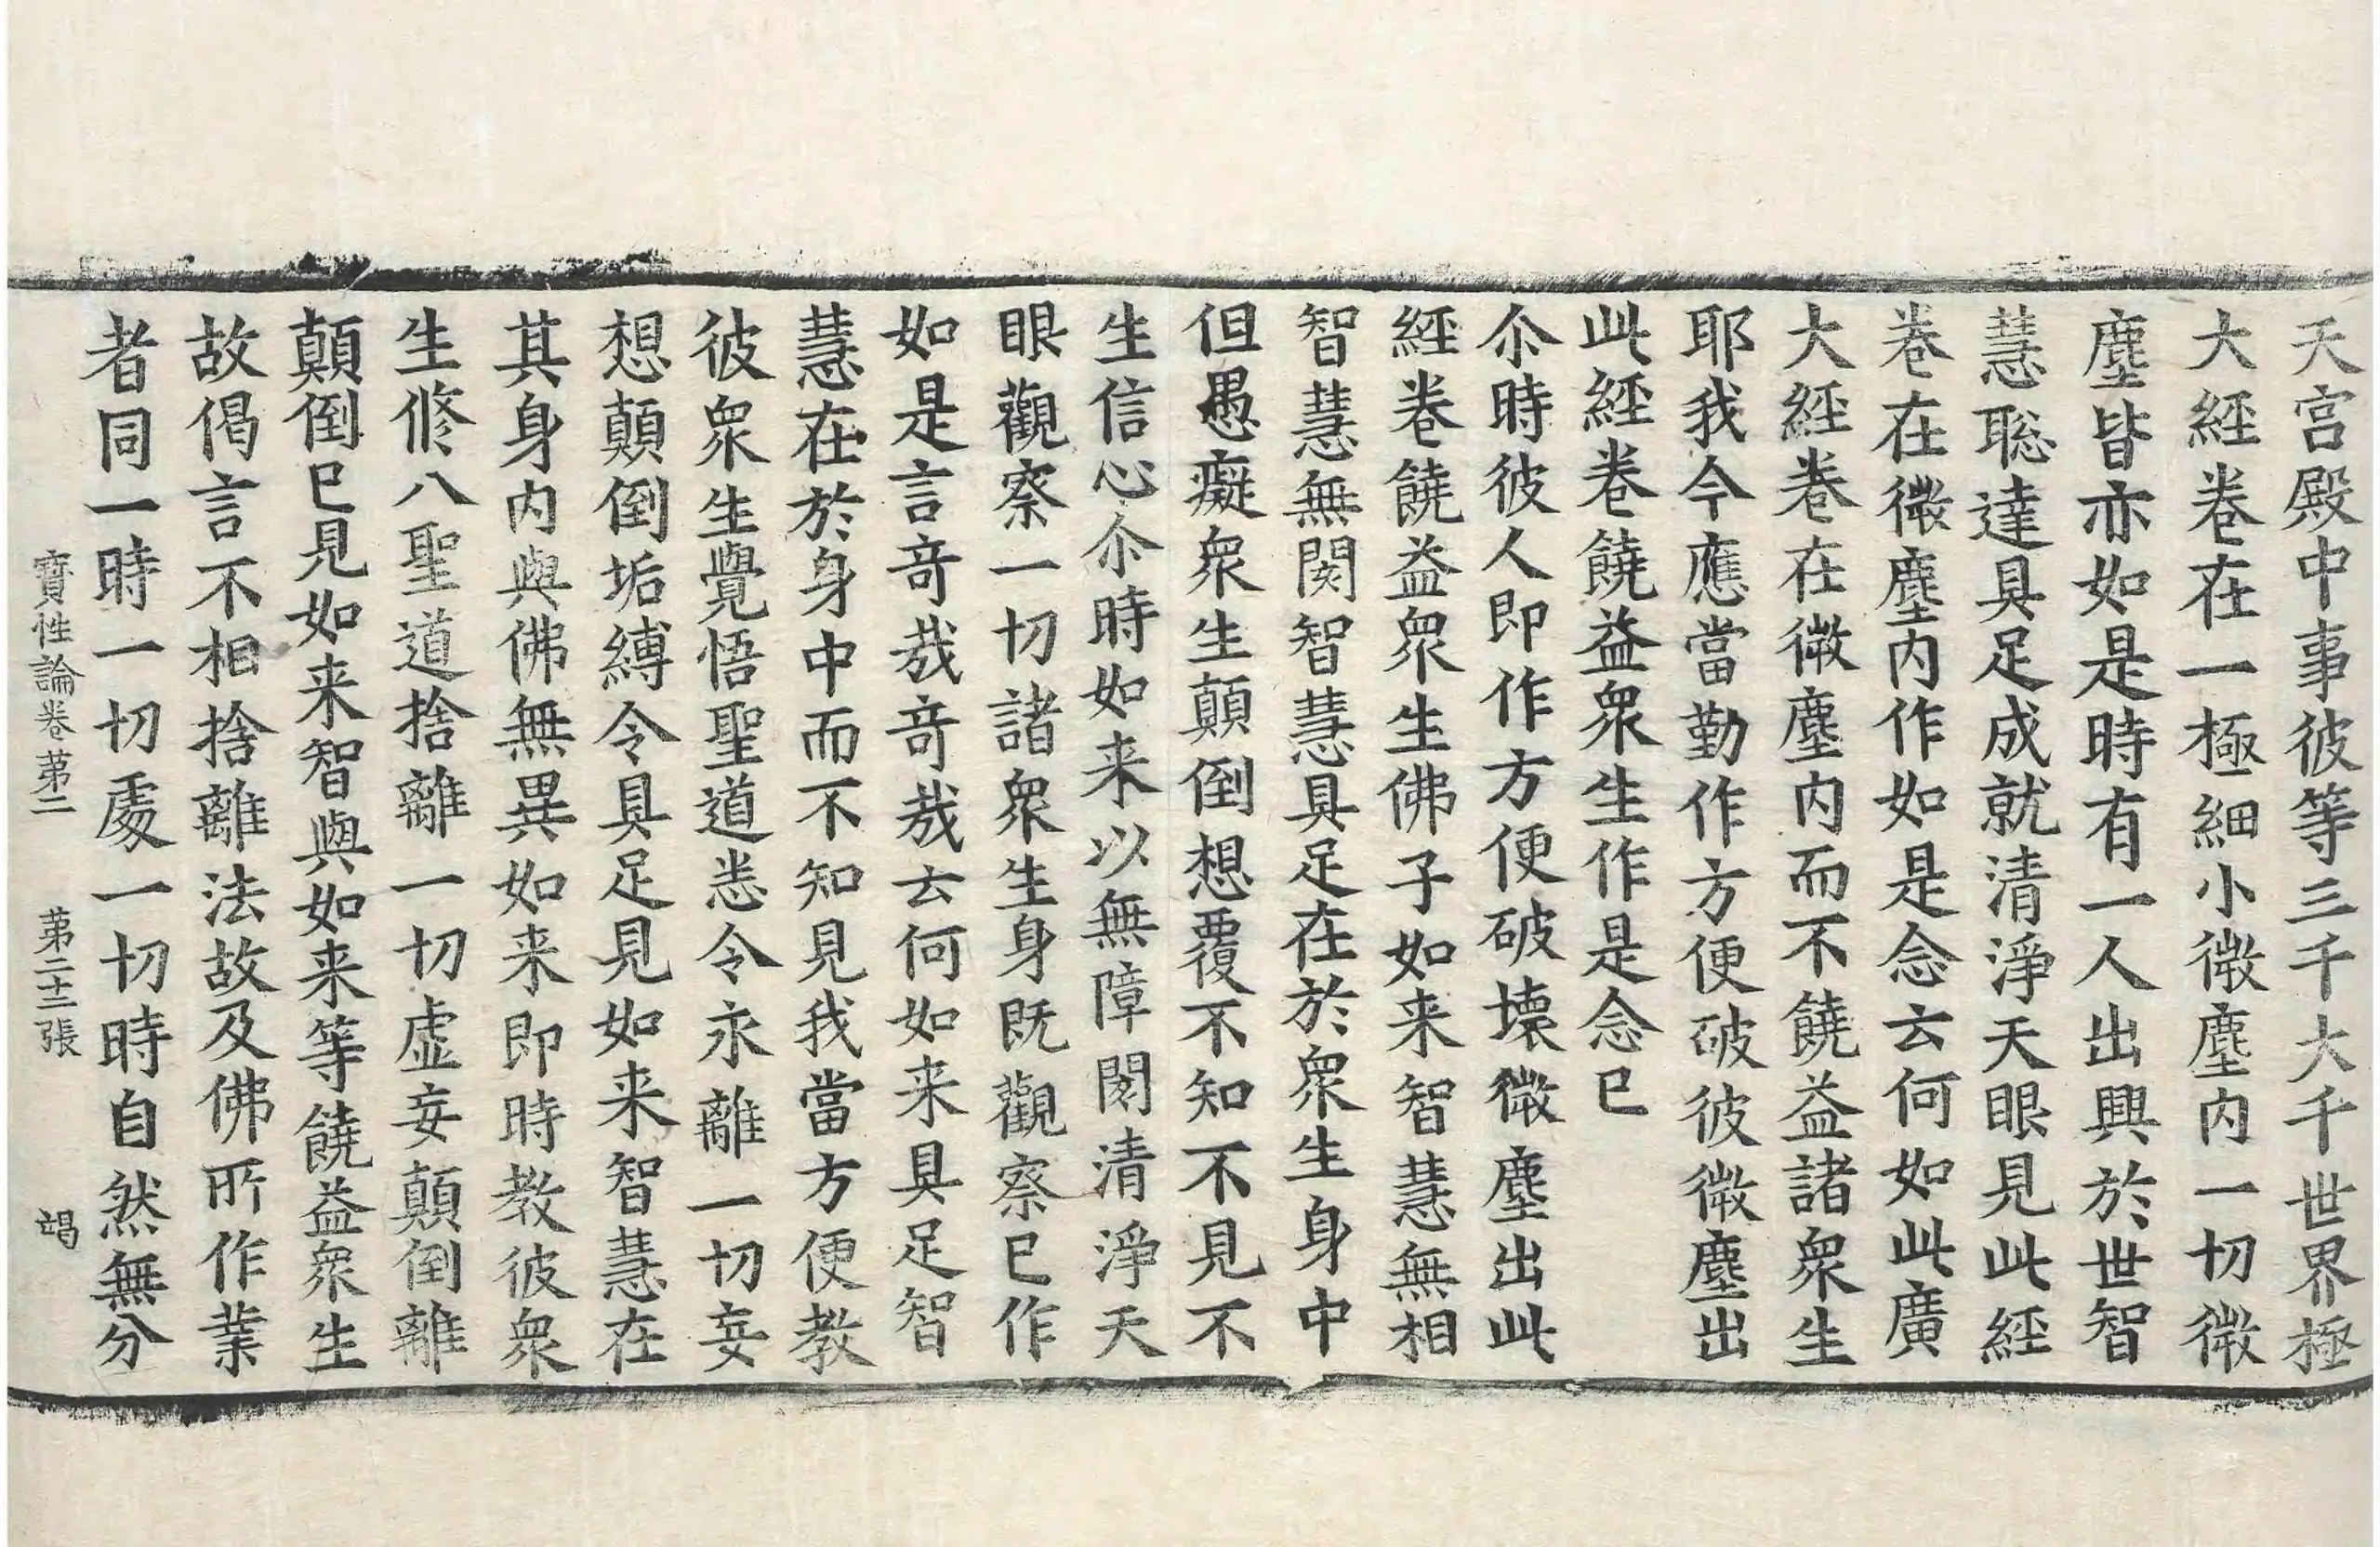 天宮殿中事彼等三千大千世界極
大經卷在一極細小微塵內一切微
塵皆亦如是時有一人出興於世智
慧聦達具足成就清淨天眼見此經
卷在微塵內作如是念云何如此廣
大經卷在微塵內而不饒益諸衆生
耶我今應當勤作方便破彼微塵出
此經卷饒益衆生作是念已
尒時彼人即作方便破壞微塵出此
經卷饒益衆生佛子如来智慧無相
智慧無閡智慧具足在於衆生身中
但愚癡衆生顛倒想覆不知不見不
生信心尒時如来以無障閡清淨天
眼觀察一切諸衆生身旣觀察已作
如是言竒㢤竒㢤云何如来具足智
慧在於身中而不知見我當方便教
彼衆生覺悟聖道悉令永離一切妄
想顛倒垢縛令具足見如来智慧在
其身內與佛無異如来即時教彼衆
生修八聖道捨離一切虛妄顛倒離
顛倒已見如来智與如来等饒益衆生
故偈言不相捨離法故及佛所作業
者同一時一切處一切時自然無分
寶性論卷苐二　苐二十二張　竭